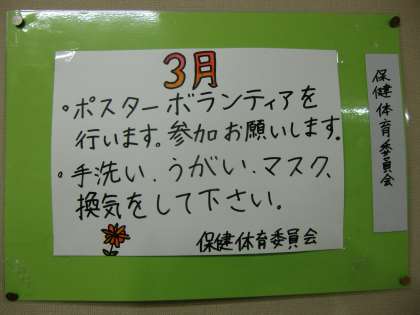 3月
・ポスターボランティアを
行います。参加お願いします。
・手洗い、うがい、マスク、
換気をして下さい。
保健体育委員会
保健体育委員会